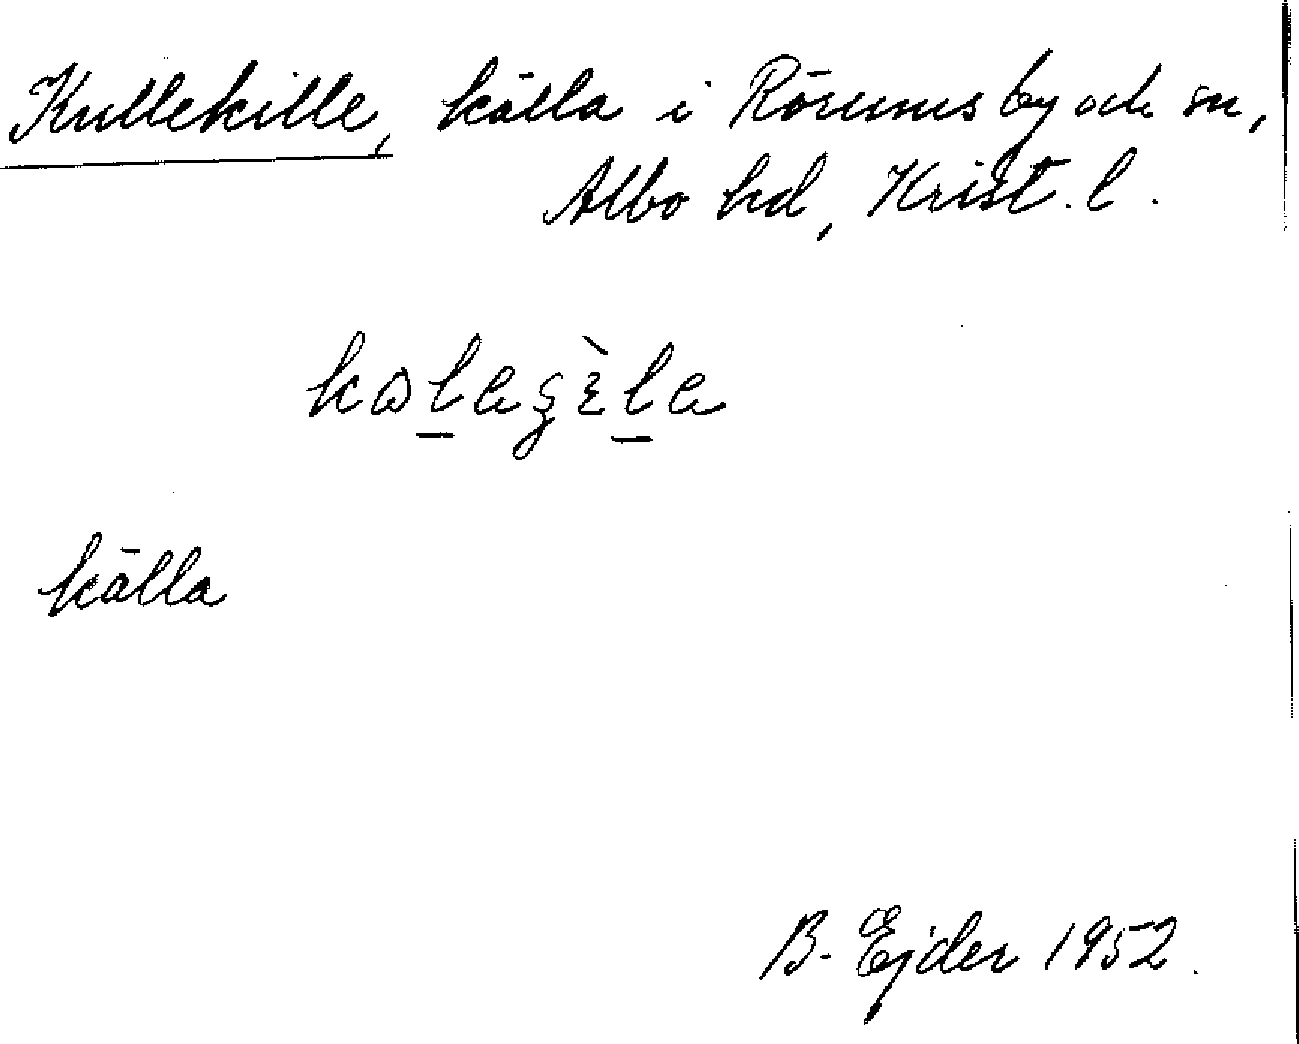 Kullekille, källa i Rörums by och sn,
Albo hd, Krist. l.
källa
B. Ejder 1952.